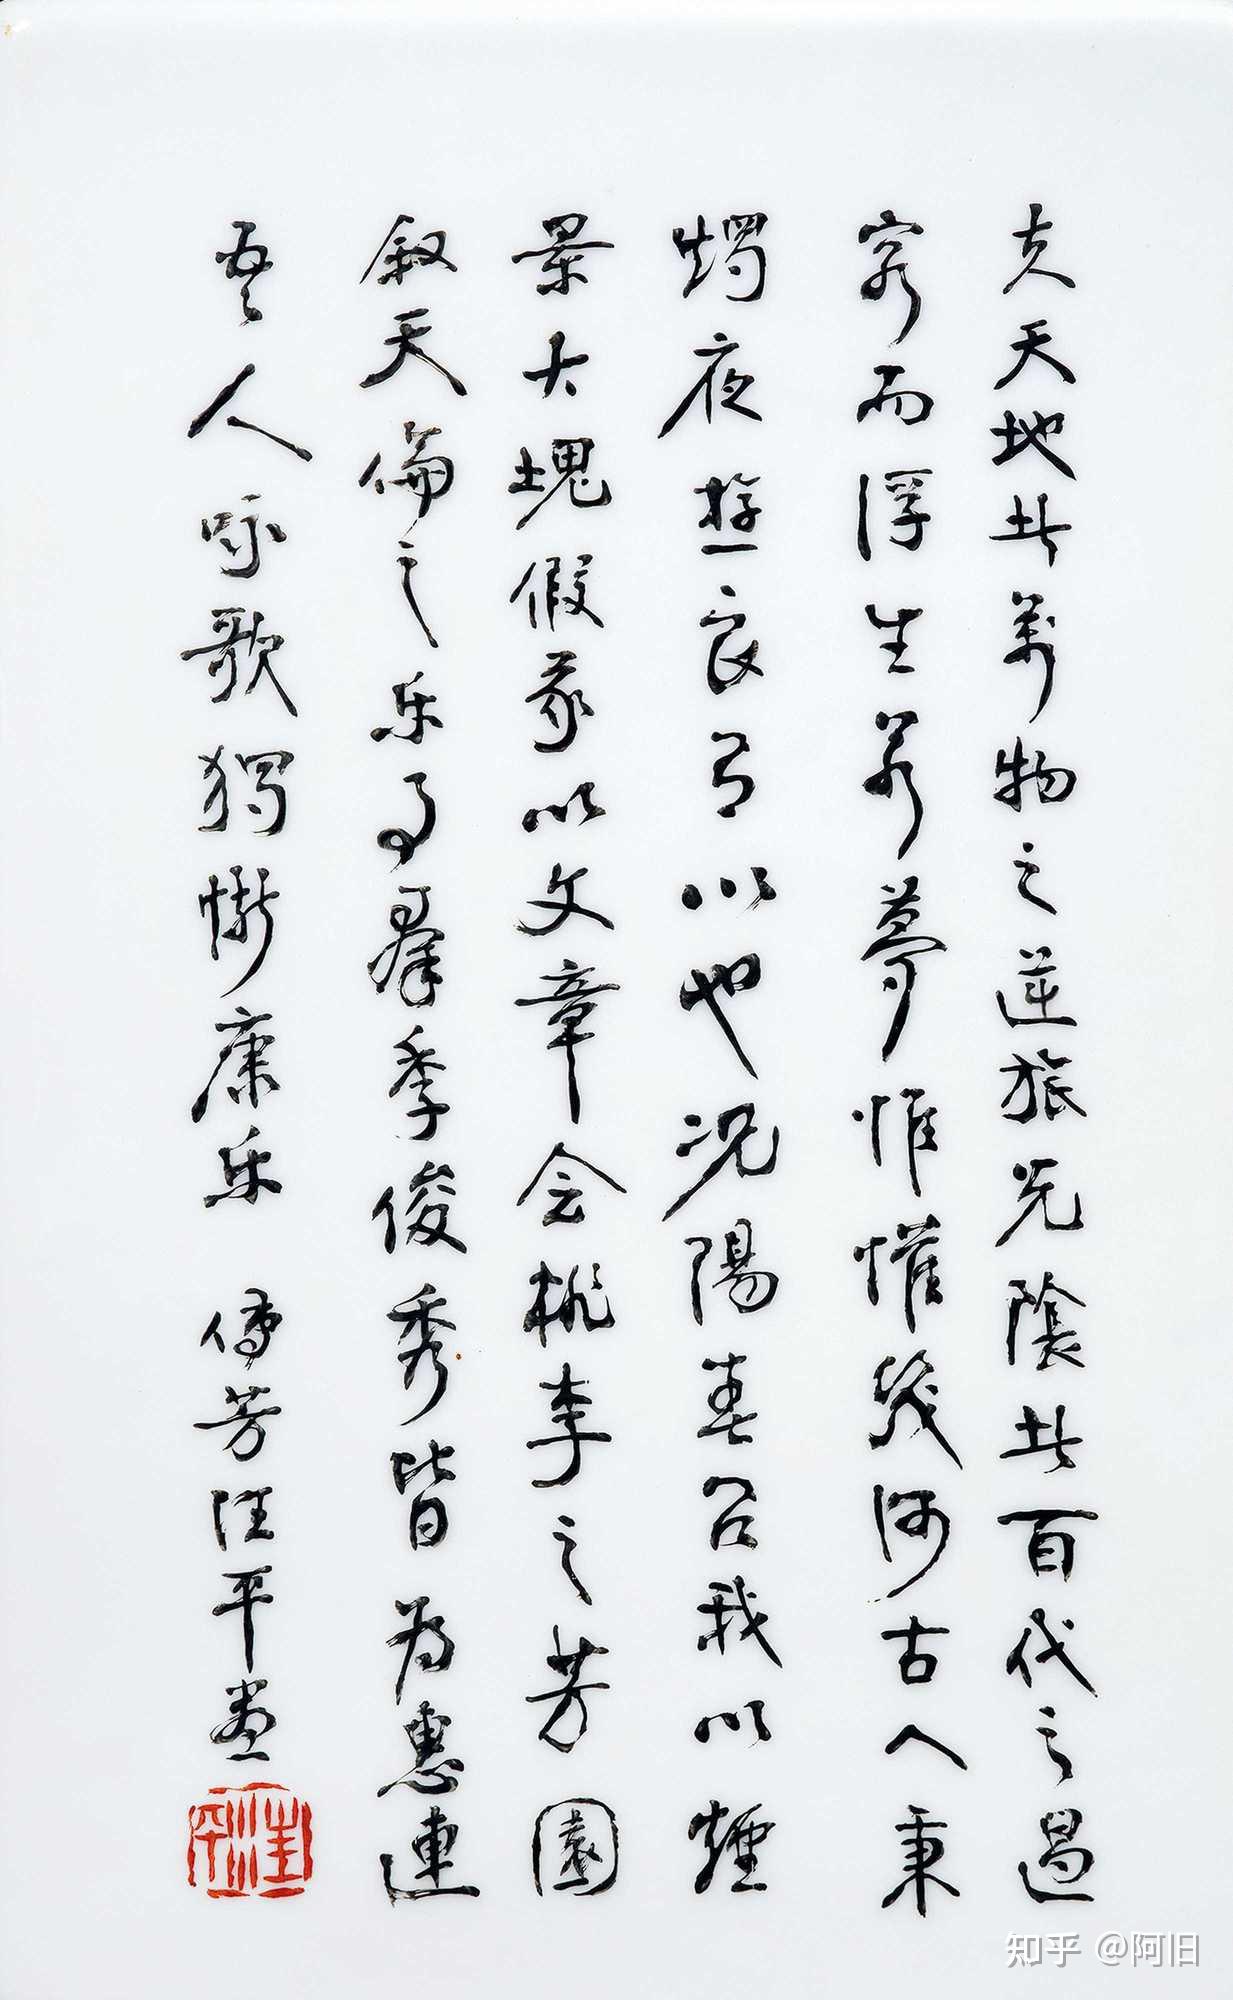 夫天地者萬物之逆旅光陰者百代之過
客而浮生若夢惟懽幾何古人秉
燭夜遊良有以也況陽春召我以煙
景大塊假我以文章会桃李之芳園
叙天倫之乐事羣季俊秀皆为惠連
吾人咏歌獨慚康乐 傳芳汪平画
汪平
知乎 @阿旧